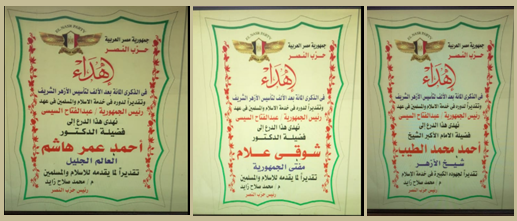 EL NASR PARTY
جمهورية مصر العربية
حزب النصر
إهداء
في الذكرى المائة بعد الألف لتأسيس الأزهر الشريف
وتقديراً لدوره في خدمة الاسلام والمسلمين في عهد
رئيس الجمهورية / عبدالفتاح السيسى
نهدى هذا الدرع إلى
فضيلة الدكتور
أحمد عمر هاشم
العالم الجليل
تقديراً لما يقدمه للإسلام والمسلمين
م / محمد صلاح زايد
رئيس حزب النصر
EL NASR PARTY
جمهورية مصر العربية
حزب النصر
إهداء
في الذكرى المائة بعد الألف لتأسيس الأزهر الشريف
وتقديراً لدوره في خدمة الاسلام والمسلمين في عهد
رئيس الجمهورية / عبدالفتاح السيسى
نهدى هذا الدرع إلى
فضيلة الدكتور
شوقى علام
مفتى الجمهورية
تقديراً لما يقدمه للإسلام والمسلمين
م / محمد صلاح زايد
رئيس حزب النصر
EL NASR PARTY
جمهورية مصر العربية
حزب النصر
إهداء
في الذكرى المائة بعد الألف لتأسيس الأزهر الشريف
وتقديراً لدوره في خدمة الاسلام والمسلمين في عهد
رئيس الجمهورية / عبدالفتاح السيسى
نهدى هذا الدرع إلى
فضيلة الامام الأكبر الشيخ
أحمد محمد الطيب
شيخ الأزهر
تقديراً لجهوده الكبيرة في خدمة الاسلام
م / محمد صلاح زايد
رئيس حزب النصر